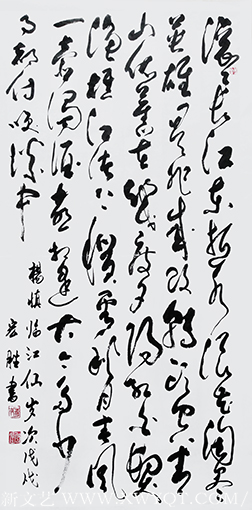 滚滚长江东逝水浪花淘尽
英雄是非成败转头空青
山依旧在几度夕阳红白发
渔樵江渚上惯看秋月春风
一壶浊酒喜相逢古今多少
事都付笑谈中
杨慎临江仙岁次戊戌
宏胜书
新文艺 WWW.XWYQT.COM/